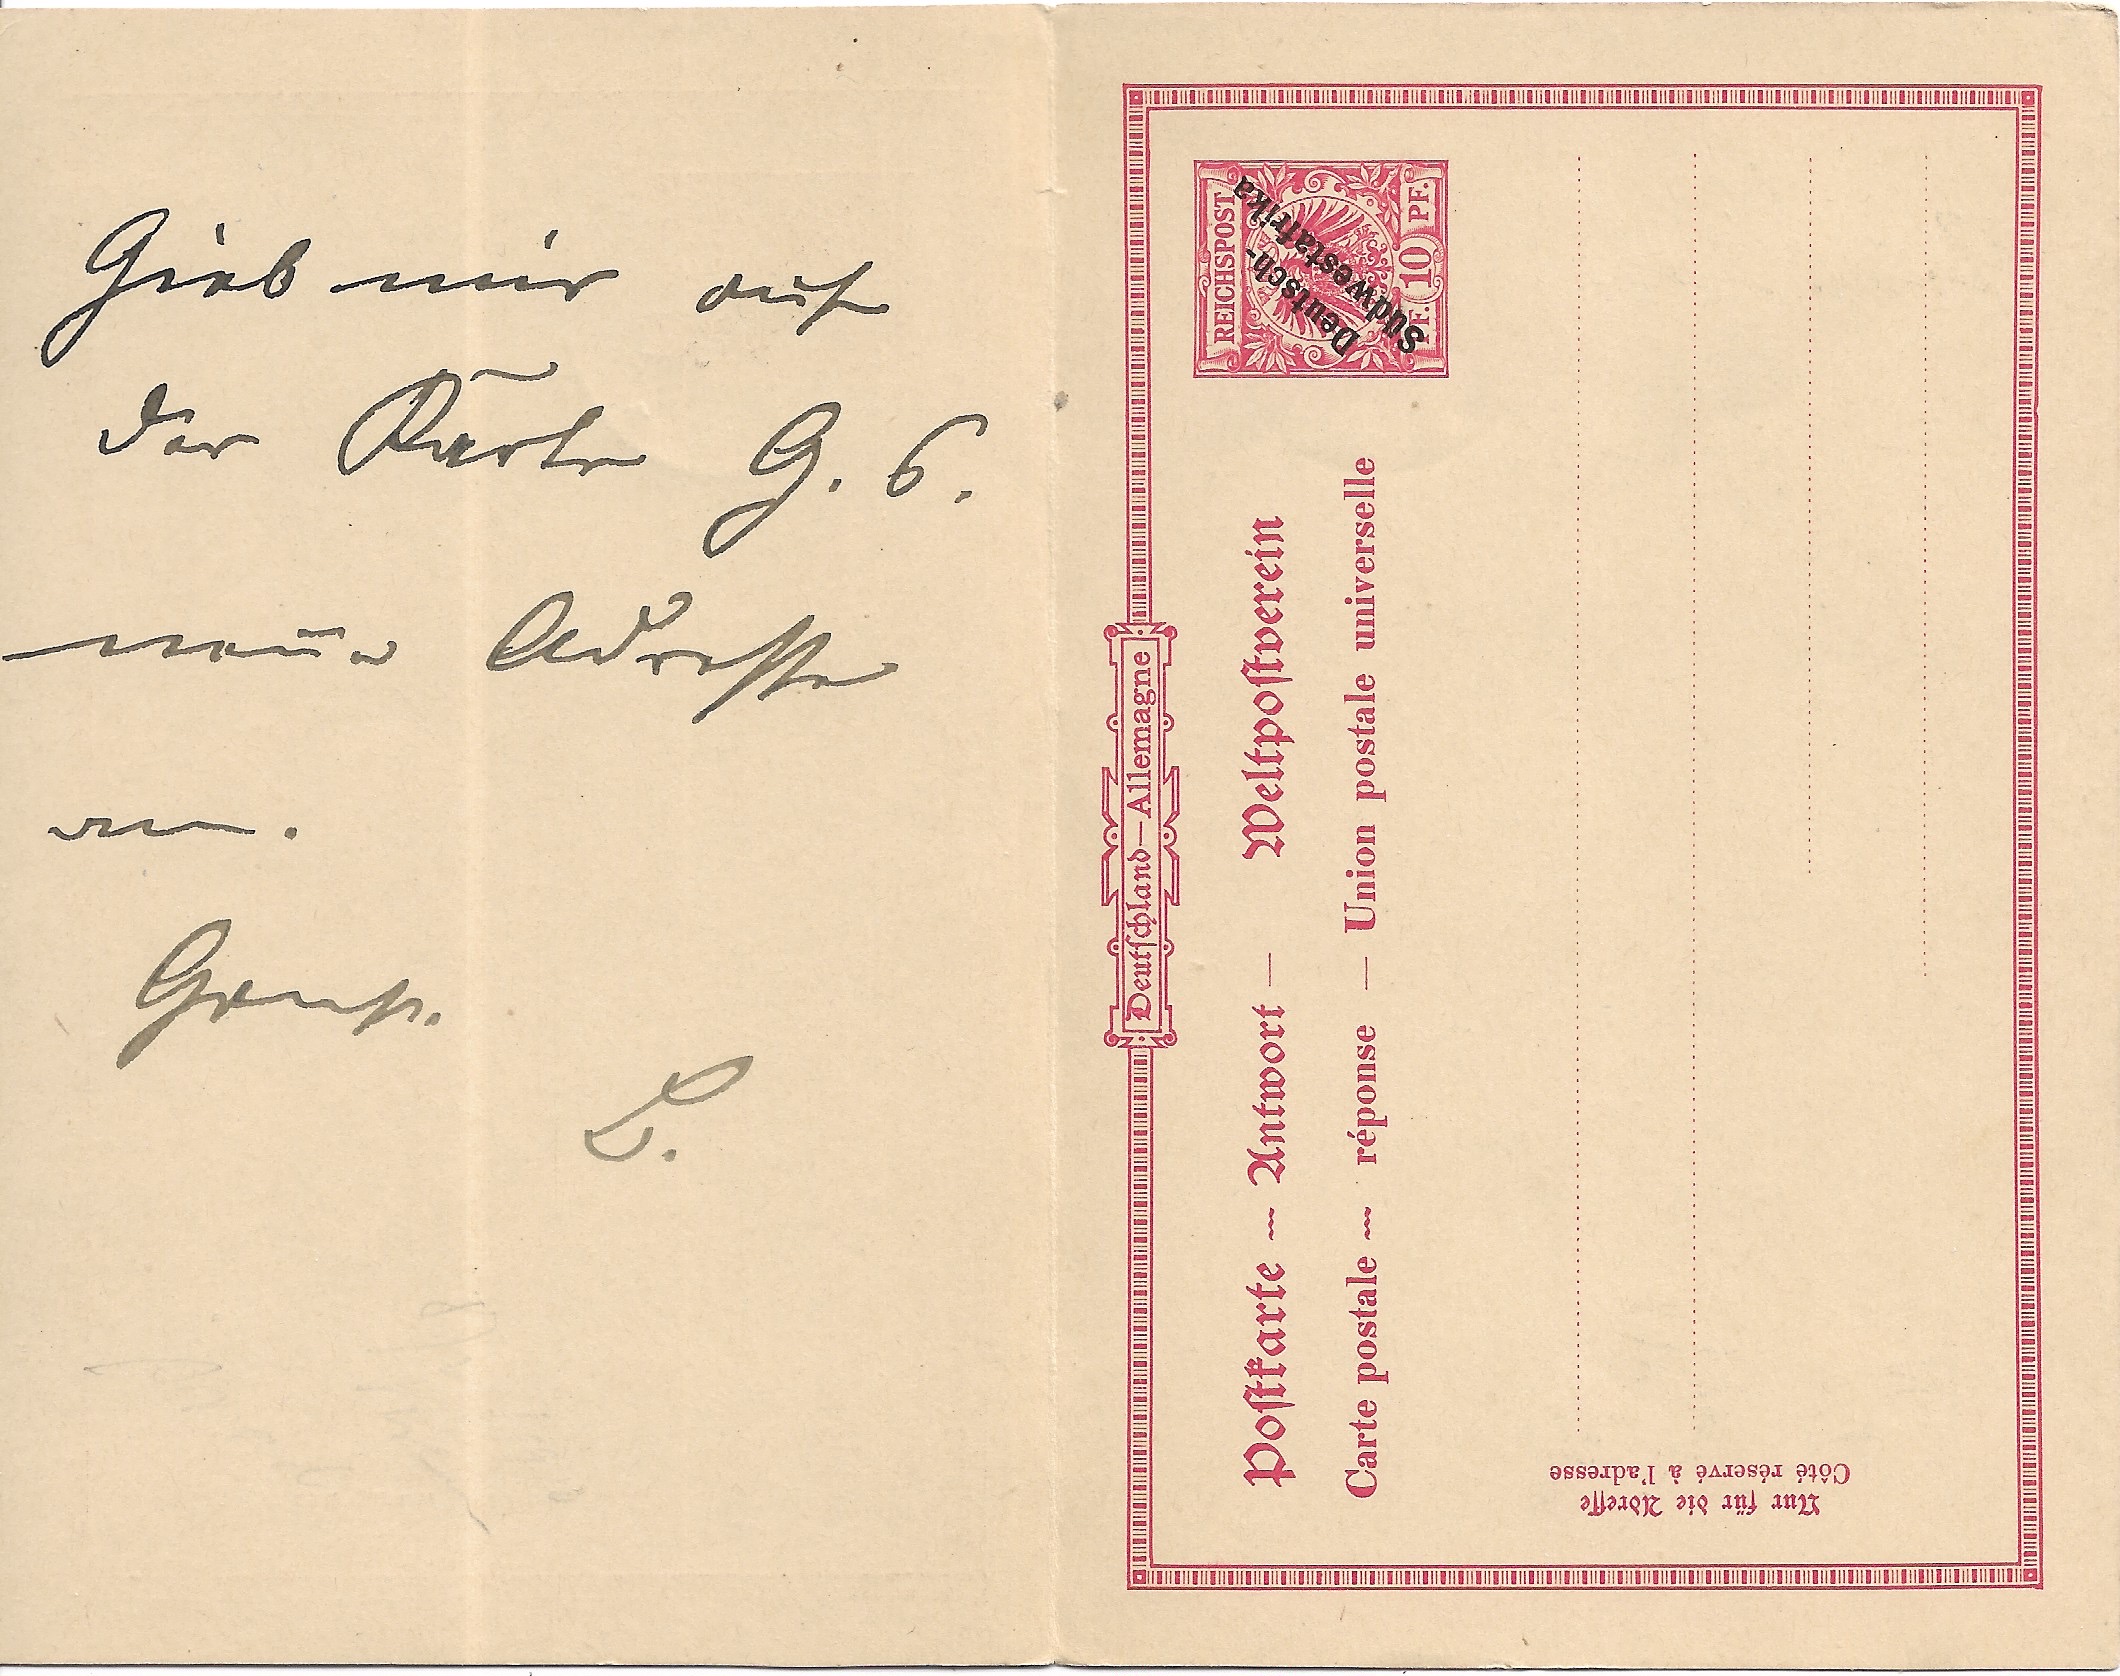 Gieb mir auf
der Karte G. 6.
neue Adresse
an.
Gruß.
L.
Deutschland—Allemagne
Postkarte — Antwort — Weltpostverein
Carte postale — réponse — Union postale universelle
REICHSPOST
PF. 10 PF.
Deutsch-
Südwestafrika
Nur für die Adresse
Côté réservé à l'adresse